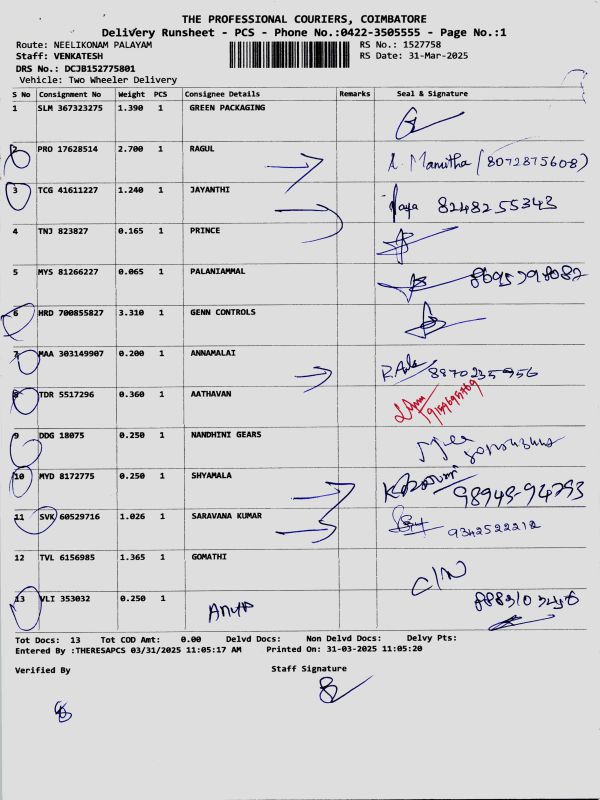 THE PROFESSIONAL COURIERS, COIMBATORE
Delivery Runsheet - PCS - Phone No.:0422-3505555 - Page No.:1
Route: NEELIKONAM PALAYAM RS No.: 1527758
Staff: VENKATESH RS Date: 31-Mar-2025
DRS No.: DCJB152775801
Vehicle: Two Wheeler Delivery
S No Consignment No Weight PCS Consignee Details Remarks Seal & Signature
1 SLM 367323275 1.390 1 GREEN PACKAGING
2 PRO 17628514 2.700 1 RAGUL Manitha (8072875608)
3 TCG 41611227 1.240 1 JAYANTHI Jaya 8248255343
4 TNJ 823827 0.165 1 PRINCE
5 MYS 81266227 0.065 1 PALANIAMMAL 8695798082
6 HRD 700855827 3.310 1 GENN CONTROLS
7 MAA 303149907 0.200 1 ANNAMALAI 8870235956
8 TDR 5517296 0.360 1 AATHAVAN
9 DDG 18075 0.250 1 NANDHINI GEARS
10 MYD 8172775 0.250 1 SHYAMALA 98943-94293
11 SVK 60529716 1.026 1 SARAVANA KUMAR 9342522212
12 TVL 6156985 1.365 1 GOMATHI C/N
13 VLI 353032 0.250 1
Tot Docs: 13 Tot COD Amt: 0.00 Delvd Docs: Non Delvd Docs: Delvy Pts:
Entered By :THERESAPCS 03/31/2025 11:05:17 AM Printed On: 31-03-2025 11:05:20
Verified By Staff Signature